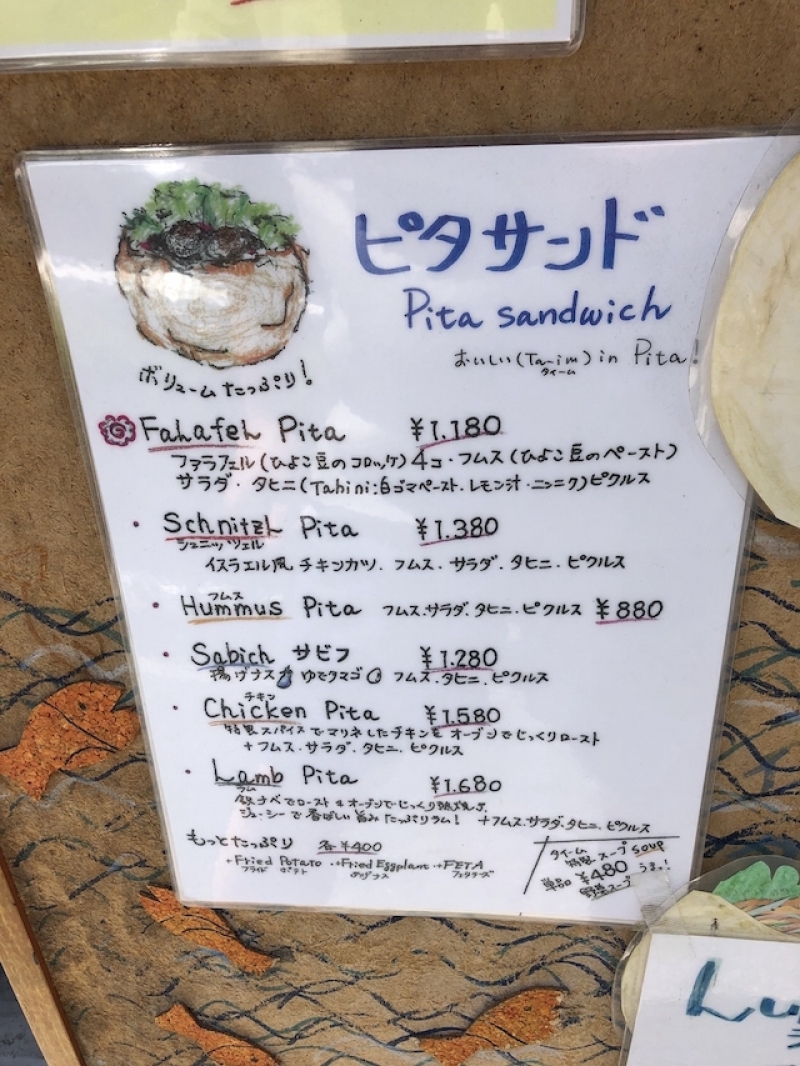 ピタサンド
Pita sandwich
おいしい(Ta-im) in Pita!
タイーム
ボリュームたっぷり!
Falafel Pita ¥1.180
ファラフェル(ひよこ豆のコロッケ)4コ・フムス(ひよこ豆のペースト)
サラダ・タヒニ(Tahini:白ゴマペースト.レモン汁.ニンニク)ピクルス
・Schnitzl Pita ¥1.380
シュニッツェル
イスラエル風チキンカツ.フムス.サラダ.タヒニ.ピクルス
フムス
・Hummus Pita フムス.サラダ.タヒニ.ピクルス ¥880
・Sabich サビフ ¥1.280
揚げナス ゆでタマゴ フムス.タヒニ.ピクルス
チキン
・Chicken Pita ¥1.580
特製スパイスでマリネしたチキンをオーブンでじっくりロースト
+フムス.サラダ.タヒニ.ピクルス
・Lamb Pita ¥1.680
ラム
鉄ナベでロースト
ジューシーで香ばしい旨みたっぷりラム! +フムス.サラダ.タヒニ.ピクルス
もっとたっぷり 各¥400
+Fried Potato ・+Fried Eggplant ・+FETA
フライドポテト フェタチーズ
タイーム
特製スープ soup
単品 ¥480 うまっ!
野菜スープ
Lu